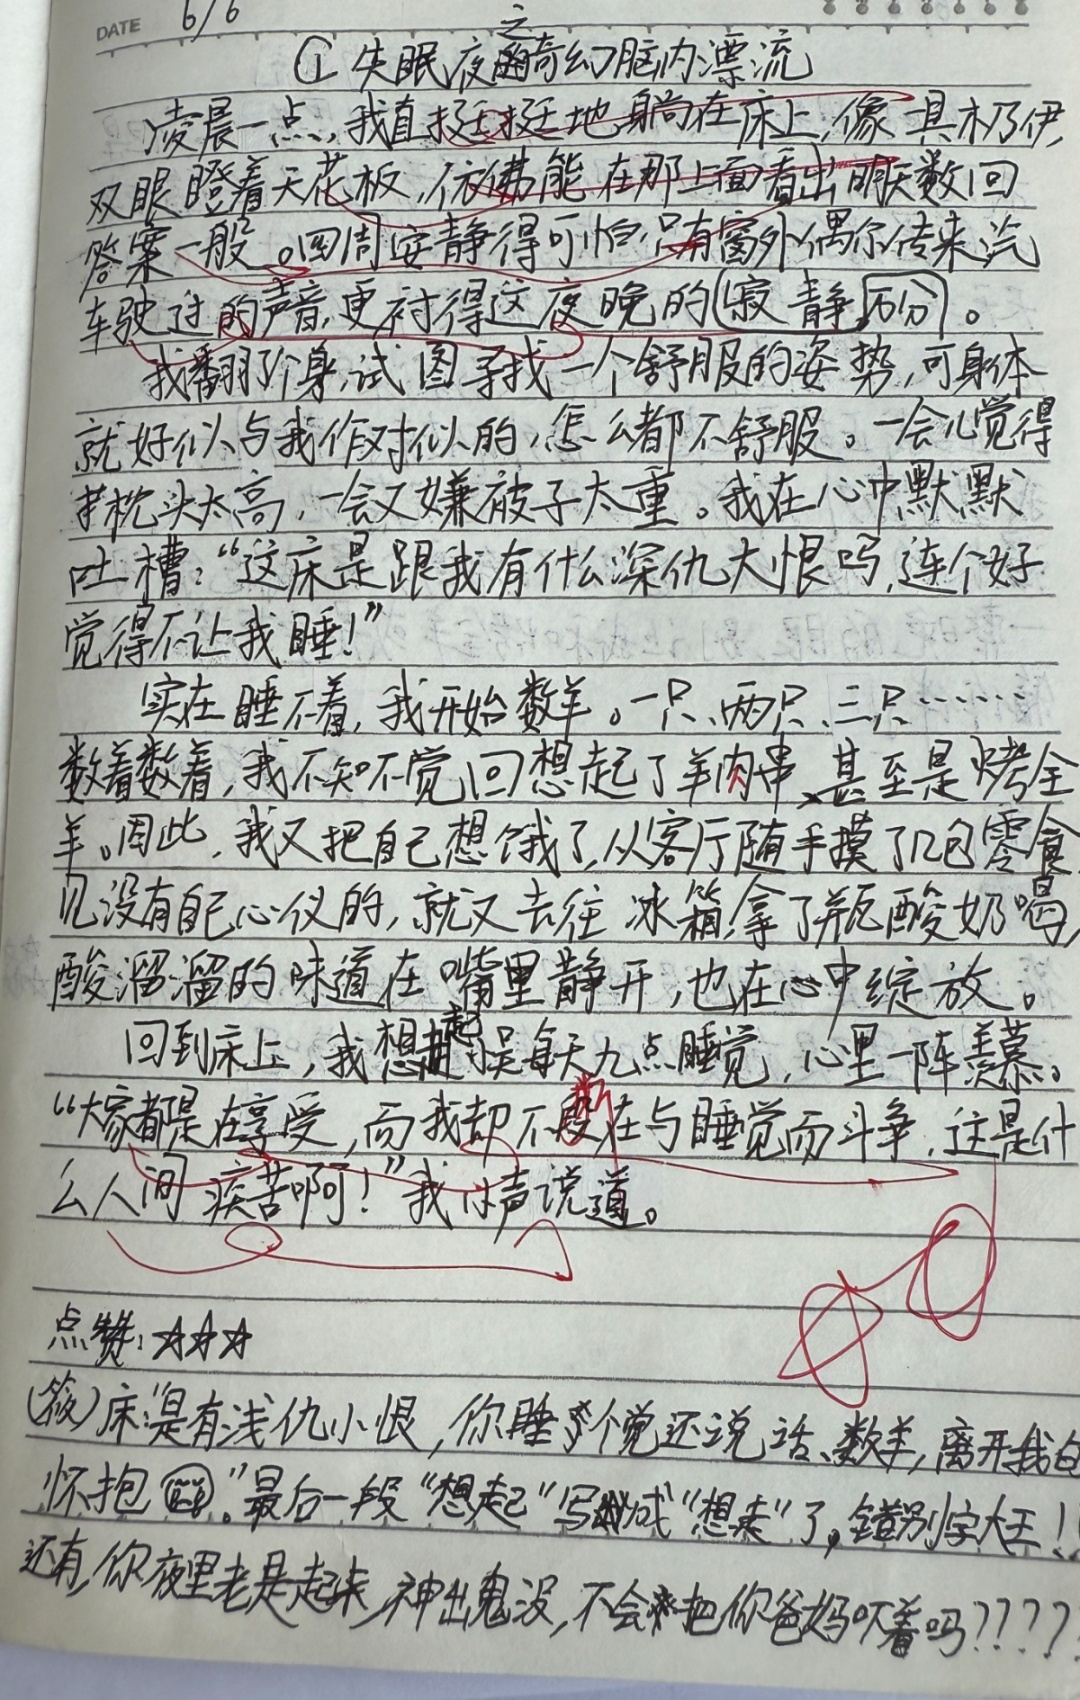 DATE 6/6
① 失眠夜之奇幻脑内漂流
凌晨一点，我直挺挺地躺在床上，像具木乃伊，
双眼瞪着天花板，依佛能在那上面看出明天数回
答案一般。四周安静得可怕，只有窗外偶尔传来汽
车驶过的声音，更衬得这夜晚的寂静万分。
我翻了个身，试图寻找一个舒服的姿势，可身体
就好似与我作对似的，怎么都不舒服。一会儿觉得
枕头太高，一会又嫌被子太重。我在心中默默
吐槽：“这床是跟我有什么深仇大恨吗，连个好
觉得不让我睡！”
实在睡不着，我开始数羊。一只、两只、三只……
数着数着，我不知不觉回想起了羊肉串、甚至是烤全
羊。因此，我又把自己想饿了，从客厅随手摸了几包零食
见没有自己心仪的，就又去往冰箱拿了瓶酸奶喝，
酸溜溜的味道在嘴里静开，也在心中绽放。
回到床上，我想起娱每天九点睡觉，心里一阵羡慕。
“大家都是在享受，而我却不断在与睡觉而斗争，这是什
么人间疾苦啊！”我小声说道。
点赞：☆☆☆
(筱)床：“是有浅仇小恨，你睡个觉还说话、数羊，离开我的
怀抱。”最后一段“想起”写成“想来”了，错别字大王！！
还有，你夜里老是起床，神出鬼没，不会把你爸妈吓着吗？？？？